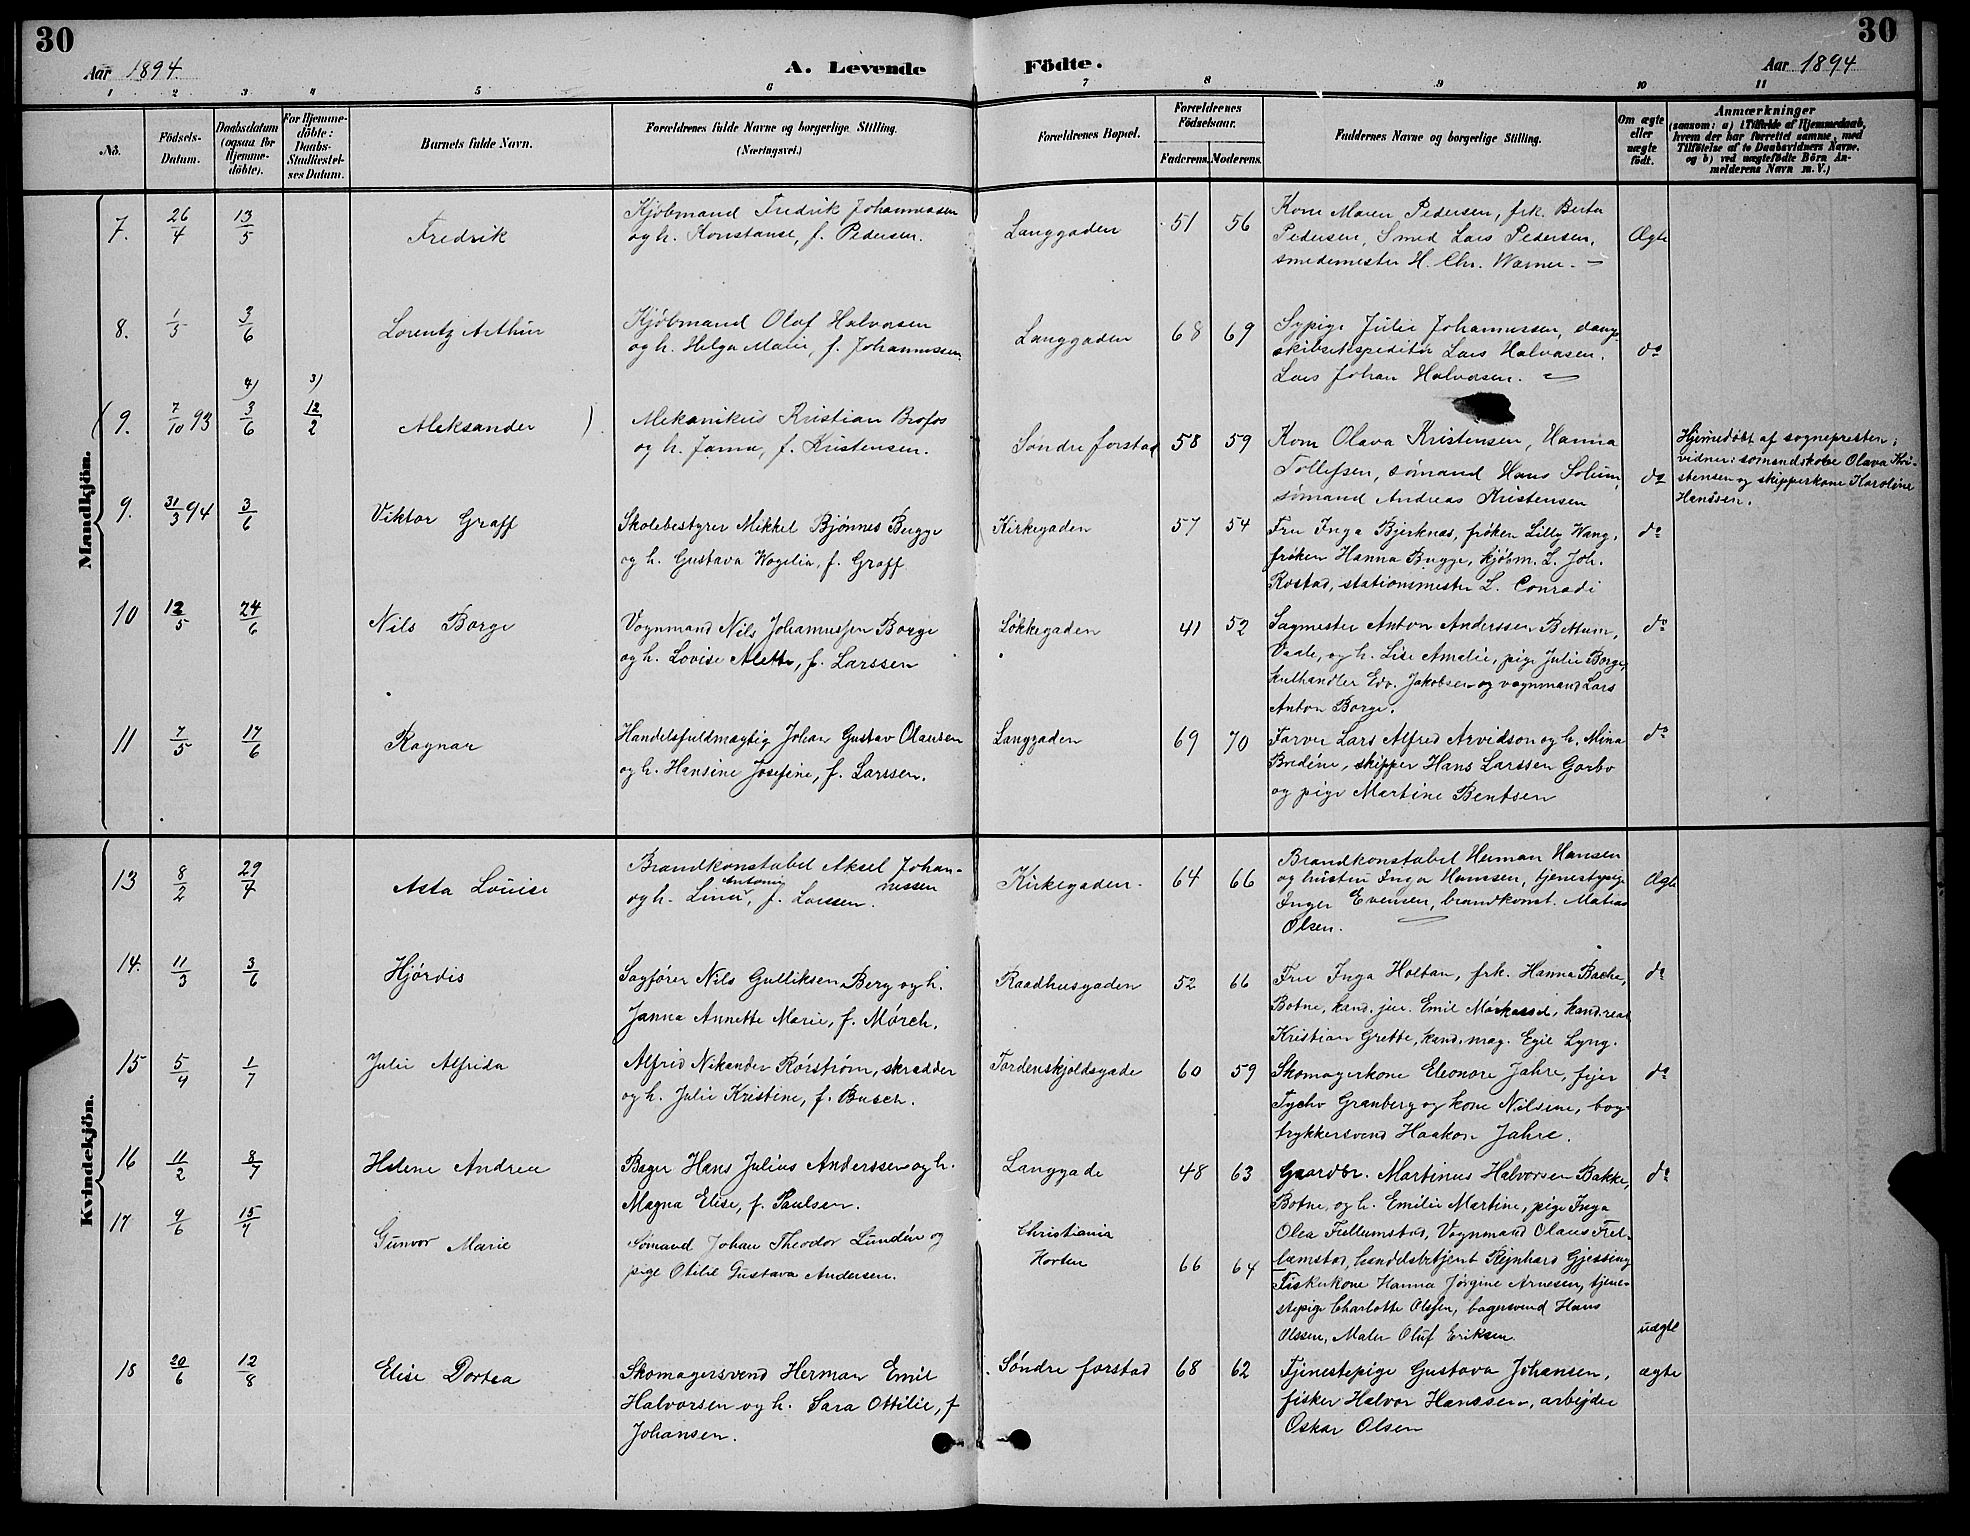 30
30
Aar 1894
A. Levende Fødte.
Aar 1894
1 2 3 4 5 6 7 8 9 10 11
No.
Fødsels-Datum.
Daabsdatum (ogsaa for Hjemmedøbte).
For Hjemmedøbte: Daabs-Stadfæstelses Datum.
Barnets fulde Navn.
Forældrenes fulde Navne og borgerlige Stilling.
(Næringsvei.)
Forældrenes Bopæl.
Forældrenes Fødselsaar.
Faderens. Moderens.
Faddernes Navne og borgerlige Stilling.
Om ægte eller uægte født.
Anmærkninger
(saasom: a) i Tilfælde af Hjemmedaab,
hvem der har forrettet samme, med
Tilføielse af to Daabsvidners Navne.
og b) ved uægtefødte Børn An-
melderens Navn m. V.)
Mandkjøn.
7. 26/4 13/5 Fredrik
Kjøbmand Fredrik Johannessen
og h. Konstanse, f. Pedersen.
Langgaden 51 56
Kone Maren Pedersen, frk. Berta
Pedersen, Smed Lars Pedersen,
smedemester H. Chr. Warner.
Ægte
8. 1/5 3/6 Lorentz Arthur
Kjøbmand Olaf Halvorsen
og h. Helga Marie, f. Johannessen
Langgaden 68 69
Sypige Julie Johannessen, damp-
skibsekspeditør Lars Halvorsen.
Lars Johan Halvorsen.
do
(9. 7/10 93 4) 3/6 3) 12/2 Aleksander )
Mekanikus Kristian Brofos
og h. Janna, f. Kristensen.
Søndre forstad 58 59
Kone Olava Kristensen, Hanna
Tollefsen, sømand Hans Solum,
sømand Andreas Kristensen
do
Hjemedøbt af sognepresten;
vidner: sømandskone Olava Kri-
stensen og skipperkone Karoline
Hansen.
9. 31/3 94 3/6 Viktor Graff
Skolebestyrer Mikkel Bjønnes Bugge
og h. Gustava Wogelia, f. Graff
Kirkegaden 57 54
Fru Inga Bjerknæs, frøken Lilly Wang,
frøken Hanna Bugge, kjøbm. L. Joh.
Rostad, stationsmester L. Conradi
do
10 12/5 24/6 Nils Borge
Vognmand Nils Johannessen Borge
og h. Lovise Alette, f. Larssen
Løkkegaden 41 52
Sagmester Anton Anderssen Bettum,
Vaale, og h. Lise Amalie, pige Julie Borge,
kulhandler Edv. Jakobsen og vognmand Lars
Anton Borge.
do
11 7/5 17/6 Ragnar
Handelsfuldmægtig Johan Gustav Olausen
og h. Hansine Josefine, f. Larssen.
Langgaden 69 70
Farver Lars Alfred Arvidson og h. Mina
Bredine, skipper Hans Larssen Garbo
og pige Martine Bentsen
do
Kvindekjøn.
13 8/2 29/4 Asta Louise
Brandkonstabel Aksel Johan-
nessen
og h. Lina Antonie, f. Larssen.
Kirkegaden 64 66
Brandkonstabel Herman Hansen
og hustru Inga Hanssen, tjenestepige
Inger Evensen, brandkonst. Matias
Olsen.
Ægte
14. 11/3 3/6 Hjørdis
Sagfører Nils Gulliksen Berg og h.
Janna Annette Marie, f. Mørch.
Raadhusgaden 52 66
Fru Inga Holtan, frk. Hanna Bache,
Botne, kand. jur. Emil Mørkassel, kand. real
Kristian Grette, kand. mag. Egil Lyng.
do
15 5/4 1/7 Julie Alfrida
Alfred Nikander Rørstrøm, skrædder
og h. Julie Kristine, f. Busch.
Tordenskjoldsgade 60 59
Skomagerkone Eleonore Jahre, fejer
Tycho Granberg og kone Nilsine, bog-
trykkersvend Haakon Jahre.
do
16 11/2 8/7 Helene Andrea
Bager Hans Julius Anderssen og h.
Magna Elise, f. Paulsen.
Langgade 48 63
Gaardbr. Martinus Halvorsen Bakke,
Botne, og h. Emilie Martine, pige Inga
Olea Fellumstad, Vognmand Olaus Fel-
lumstad, handelsbetjent Reinhard Gjessing
do
17 4/6 15/7 Gunvor Marie
Sømand Johan Theodor Lundén og
pige Otilie Gustava Andersen.
Christiania
Horten
66 64
Fiskerkone Hanna Jørgine Arnesen, tjene-
stepige Charlotte Olsen, bagersvend Hans
Olssen, Maler Oluf Eriksen.
uægte
18 20/6 12/8 Elise Dortea
Skomagersvend Herman Emil
Halvorsen og h. Sara Ottilie, f.
Johansen.
Søndre forstad 68 62
Tjenestepige Gustava Johansen,
fisker Halvor Hanssen, arbejder
Oskar Olsen
ægte